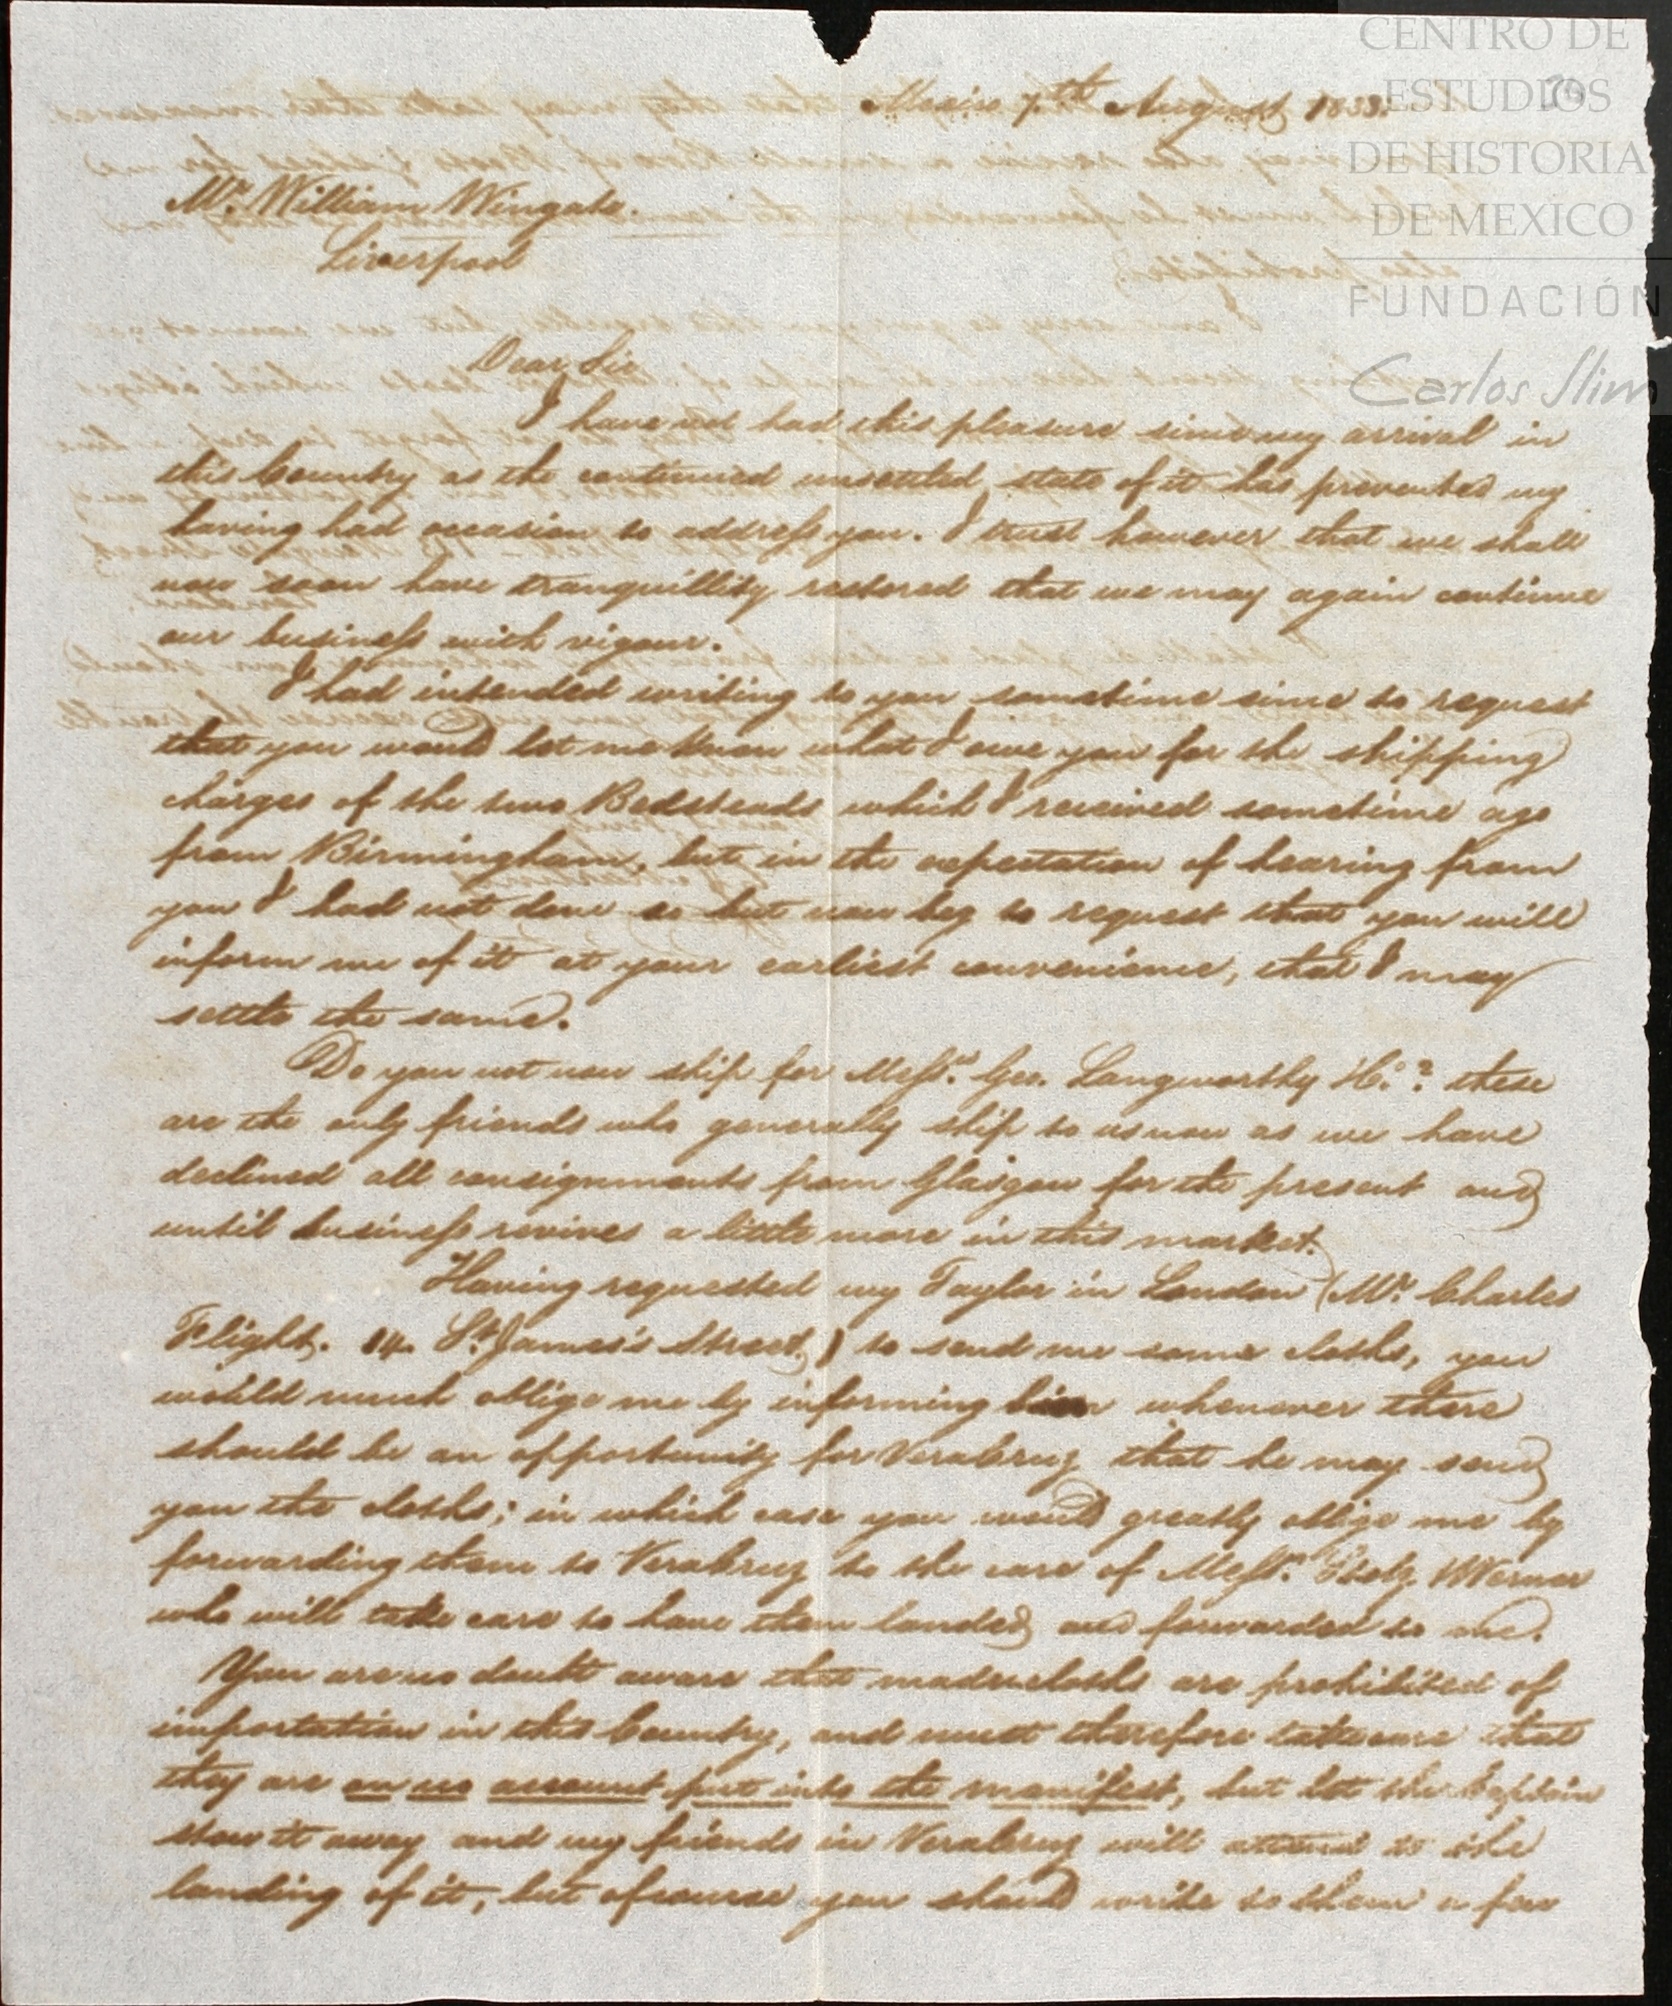 CENTRO DE
ESTUDIOS
DE HISTORIA
DE MEXICO
FUNDACIÓN
Carlos Slim
Mexico 7th August 1833.
Mr. William Wingate.
Liverpool
Dear Sir
I have not had this pleasure since my arrival in
this Country as the continued unsettled state of it has prevented my
having had occasion to address you. I trust however that we shall
now soon have tranquillity restored that we may again continue
our business with vigour.
I had intended writing to you sometime since to request
that you would let me know what I owe you for the shipping
charges of the two Bedsteads which I received sometime ago
from Birmingham, but in the expectation of hearing from
you I had not done so but now beg to request that you will
inform me of it at your earliest convenience, that I may
settle the same.
Do you not now ship for Messrs. Geo. Langworthy & Co.? these
are the only friends who generally ship to us now as we have
declined all consignments from Glasgow for the present and
until business revives a little more in this market.
Having requested my Taylor in London (Mr. Charles
Flight. 14. St. James's Street.) to send me some cloths, you
would much oblige me by informing him whenever there
should be an opportunity for VeraCruz that he may send
you the cloths; in which case you would greatly oblige me by
forwarding them to VeraCruz to the care of Messrs. Werner
who will take care to have them landed and forwarded to me.
You are no doubt aware that made cloths are prohibited of
importation in this Country, and must therefore take care that
they are on no account put into the manifest, but let the Captain
stow it away and my friends in VeraCruz will attend to the
landing of it, but of course you should write to them a few